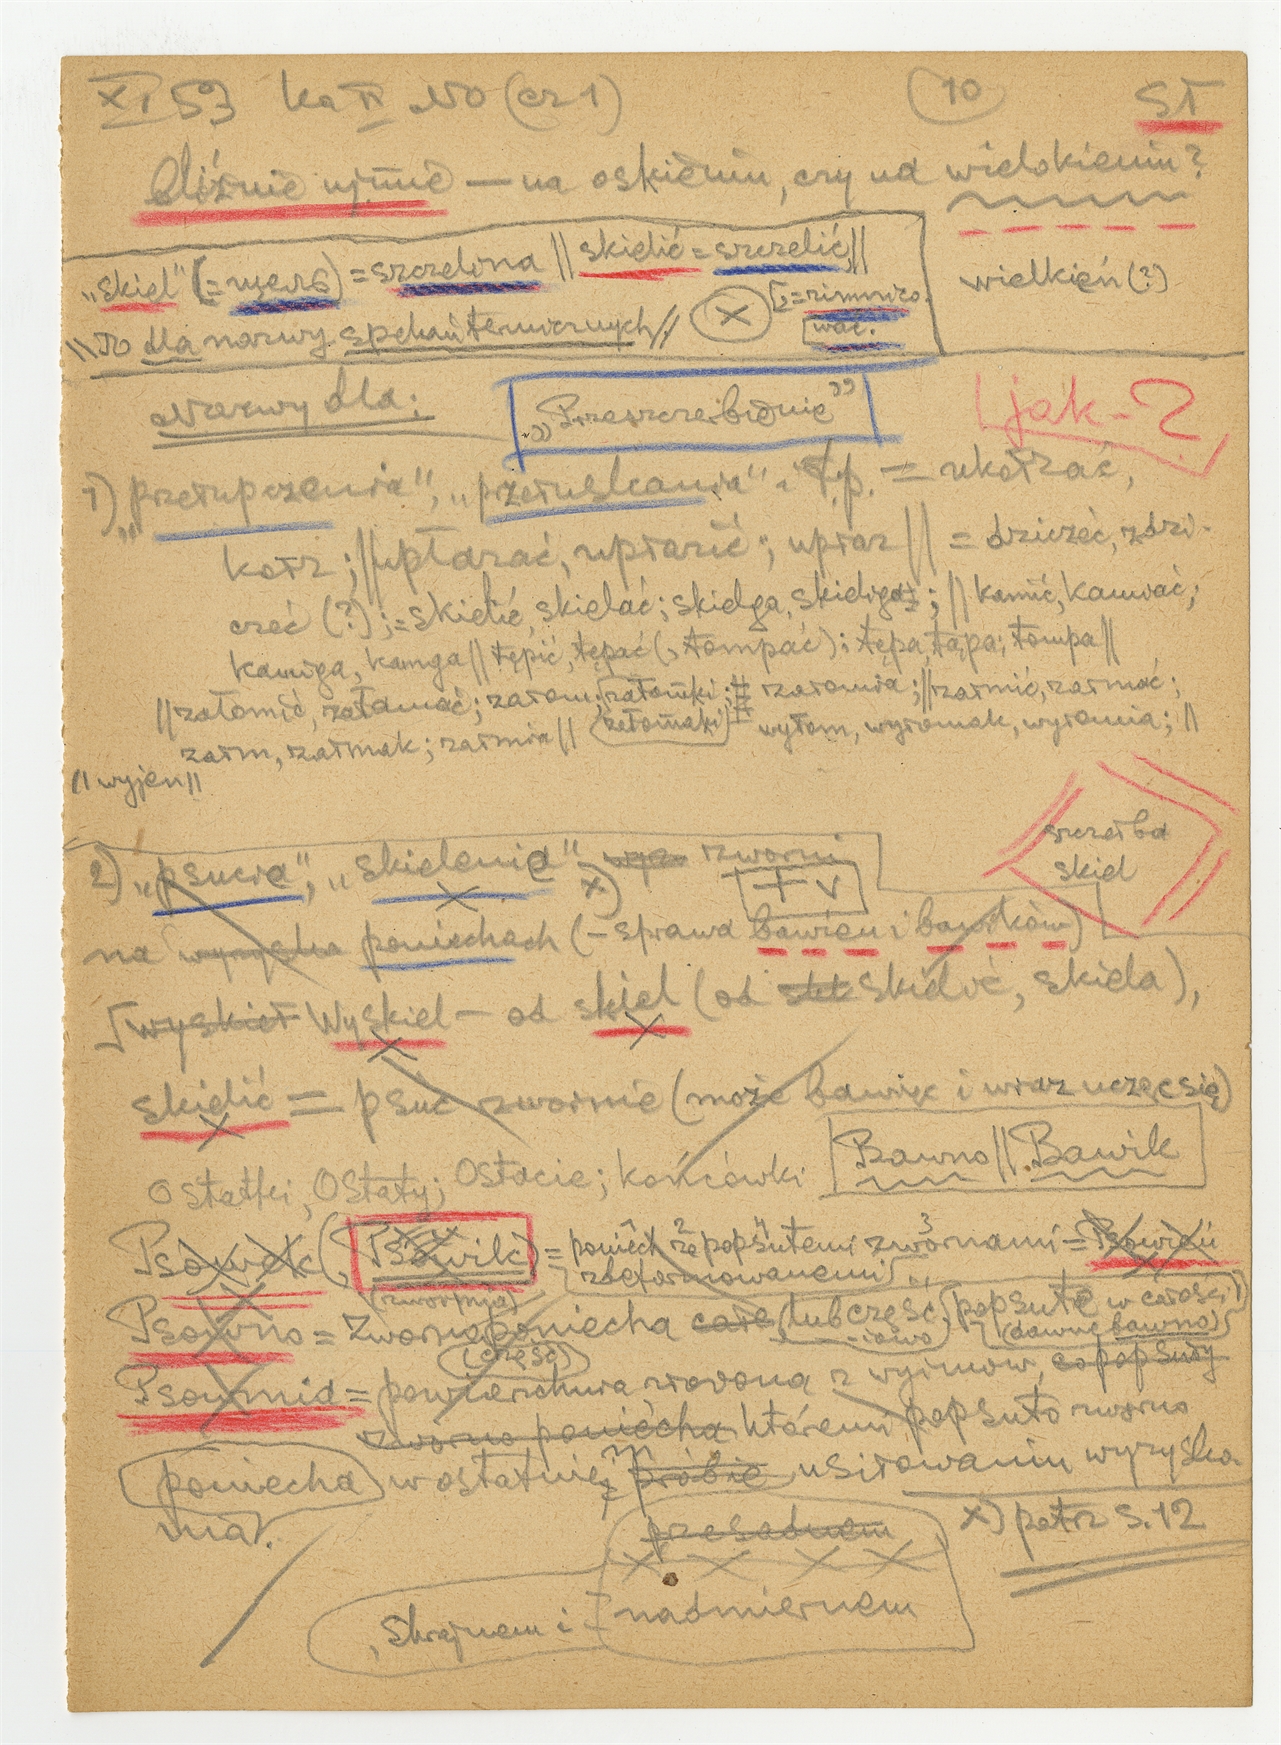 XI 53 ka IV No (cz 1) 10 ST
bliźnie ujmie — na oskieniu, czy na wielokieniu?
„skiel" (= ) = szczelina || skielić = szczelić, ||
wielkień (?)
|| To dla nazwy spękań termicznych // X [= rzimnizo-
wać.
Nazwy dla: „Przeszczeibienie" jak-?
1) „przełupczenia", „przełuskania" i t.p. = ukotrzać,
kotrz; || upłazać, upłazić; upłaz || = dziczeć, zdzi-
czeć (?); = skielić, skielać; skielga, skieliga; || kamić, kamwać;
kamiga, kamga || tępić, tępać (, tompać): tępa, tąpa; tompa ||
|| załomić, załamać; załom; załomki; załomia; || załmić, załmać;
załm, załmak; załmia || załomaki wyłom, wyłomak, wyłomia; ||
|| wyjen ||
szczerba
skiel
2) „psucia", „skielenia" x) zworni
+ v
na wyzyska poniechach (– sprawa bawień i bawików)
wyskieł Wyskiel – od skiel (od skielić, skiela),
skielić = psuć zwornie (może bawięc i wraz uczęc się)
Ostatki, Ostaty; Ostacie; końcówki Bawno || Bawik
Psowiek (, Psowik) = poniech ze popsutemi zwornami = Psowień
2 4 3
zdeformowanemi
(zwornja)
Psowno = Zworna poniecha cała (lub część, popsute w całości)
-iowo (dawne bawno)
(część)
Psowmid = powierzchnia złożona z wyimów, co popsuły
zworno poniecha któremi popsuto zworno
poniecha w ostatniej próbie usiłowaniu wyzyska
nia. przesadnem x) patrz s. 12
X X X X
, skrajnem i nadmiernem